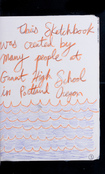 This Sketchbook
was created by
many people at
Grant High School
in Portland Oregon